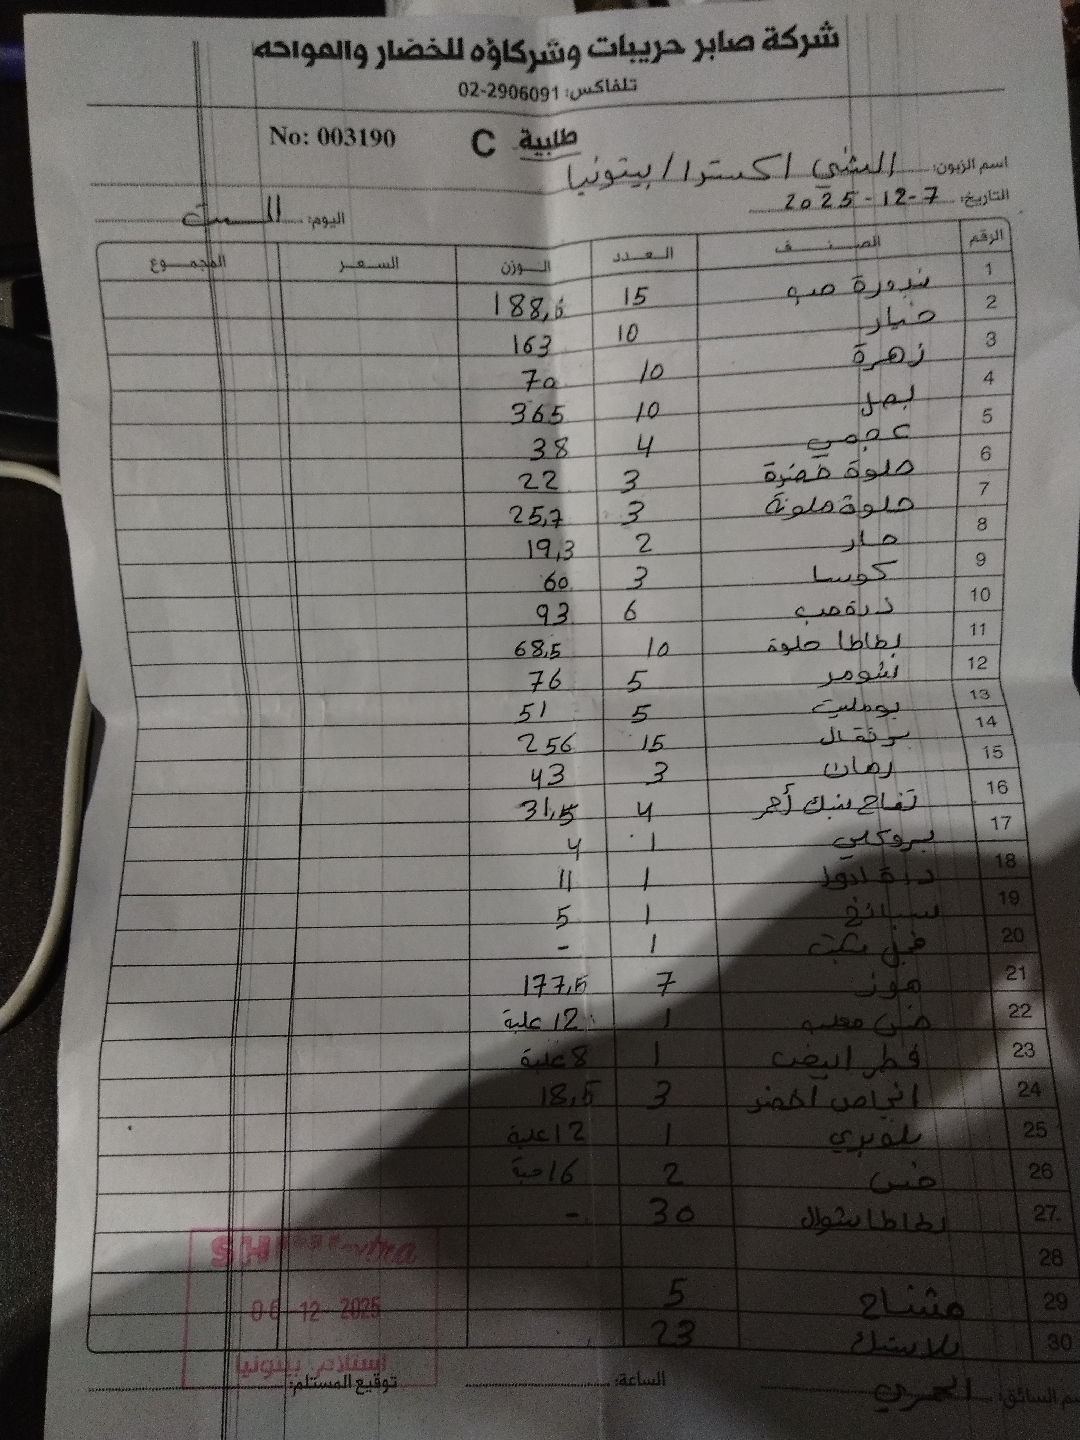 شركة صابر حريبات وشركاؤه للخضار والفواكه
تلفاكس: 02-2906091
طلبية C No: 003190
اسم الزبون: الشني اكسترا / بيتونيا
التاريخ: 7-12-2025
اليوم: السبت
الرقم الصنف العدد الوزن السعر المجموع
1 بندورة حب 15 188,5
2 خيار 10 163
3 زهرة 10 70
4 بصل 10 365
5 عجمي 4 38
6 حلوة خضرة 3 22
7 حلوة ملونة 3 25,7
8 حار 2 19,3
9 كوسا 3 60
10 ذرة حب 6 93
11 بطاطا حلوة 10 68,5
12 شومر 5 76
13 بوملي 5 51
14 برتقال 15 256
15 رمان 3 43
16 تفاح بنك أحمر 4 31,5
17 بروكلي 1 4
18 1 11
19 سبانخ 1 5
20 فجل 1 -
21 موز 7 177,5
22 خس معلب 1 12 علبة
23 فطر ابيض 1 8 علبة
24 انجاص اخضر 3 18,5
25 بلوبري 1 12 علبة
26 خس 2 16 حبة
27 بطاطا شوال 30 -
28
29 مشتاح 5
30 بلاستك 23
06 12 2025
استلام بيتونيا
توقيع المستلم:
الساعة:
اسم السائق: